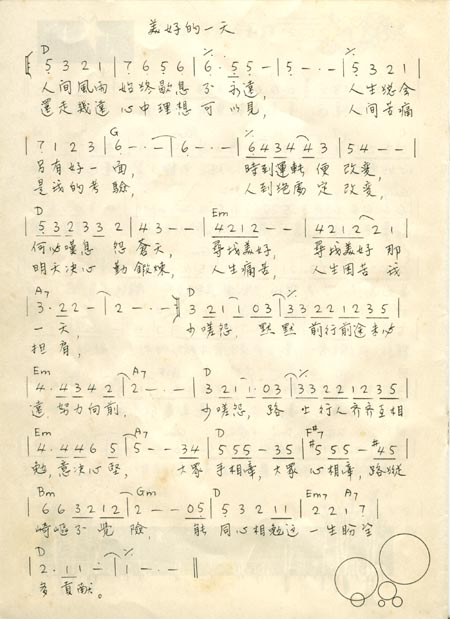 美好的一天
D
5 3 2 1 | 7 6 5 6 | 6 · 5 5 - | 5 - · - | 5 3 2 1 |
人間風雨 始終歇息 不 永遠, 人生總會
還走幾遠 心中理想 可 以見, 人間苦痛
G
7 1 2 3 | 6 - · - | 6 - · - | 6 4 3 4 4 3 | 5 4 - - |
另有好一面, 時到運轉 便 改變,
是我的考驗, 人到絕處 定 改變,
D Em
5 3 2 3 3 2 | 4 3 - - | 4 2 1 2 - - | 4 2 1 2 2 1 |
何必嘆息 怨 蒼天, 尋找美好, 尋找美好 那
明天決心 勤 鍛煉, 人生痛苦, 人生困苦 我
A7 D
3 · 2 2 - | 2 - · - | 3 2 1 1 0 3 | 3 3 2 2 1 2 3 5 |
一 天, 少嗟怨, 默默 前行前途未必
担 肩,
Em A7 D
4 · 4 3 4 2 | 2 - · - | 3 2 1 1 · 0 3 | 3 3 2 2 1 2 3 5 |
遠, 努力向前, 少嗟怨, 路 上行人齊齊互相
Em A7 D F#7
4 · 4 4 6 5 | 5 - - 3 4 | 5 5 5 - 3 5 | #5 5 5 - #4 5 |
勉, 意決心堅, 大家 手相牽, 大家 心相牽, 路縱
Bm Gm D Em7 A7
6 6 3 2 1 2 | 2 - - 0 5 | 5 3 2 1 1 | 2 2 1 7 |
崎嶇不覺 險, 能 同心相勉這 一生盼望
D
2 · 1 1 - | 1 - · - |
多 貢獻。